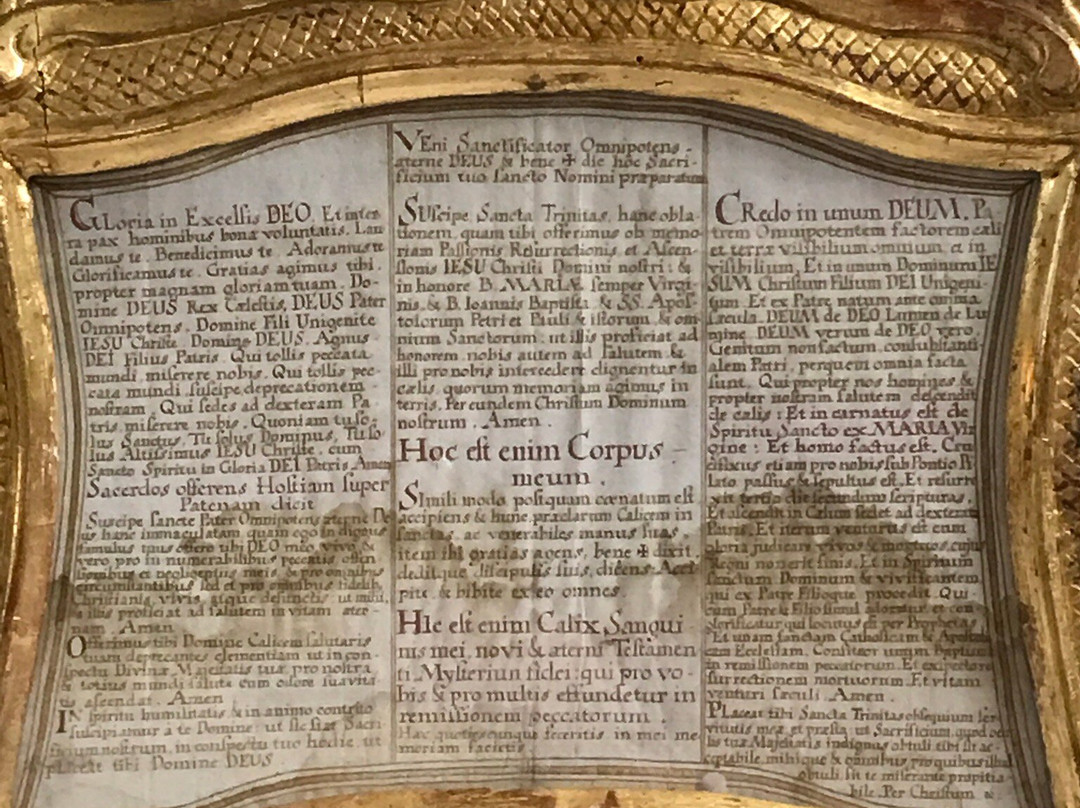 GLoria in Excelsis DEO. Et in ter
ra pax hominibus bonæ voluntatis. Lau
damus te. Benedicimus te. Adoramus te
Glorificamus te. Gratias agimus tibi.
propter magnam gloriam tuam. Do-
mine DEUS Rex Cælestis, DEUS Pater
Omnipotens. Domine Fili Unigenite
IESU Christe. Domine DEUS. Agnus
DEI Filius Patris. Qui tollis peccata
mundi, miserere nobis. Qui tollis pec-
cata mundi, suscipe deprecationem
nostram. Qui sedes ad dexteram Pa
tris, miserere nobis. Quoniam tu so-
lus Sanctus, Tu solus Dominus, Tu so-
lus Altissimus IESU Christe. cum
Sancto Spiritu in Gloria DEI Patris. Amen
Sacerdos offerens Hostiam super
Patenam dicit
Suscipe sancte Pater Omnipotens æterne De
us hanc immaculatam quam ego indignus
famulus tuus offero tibi DEO meo vivo, &
vero pro in numerabilibus peccatis, offen
sionibus et negligentiis meis, & pro omnibus
circumstantibus sed et pro omnibus fidelib.
Christianis, vivis, atque defunctis ut mihi,
& illis proficiat ad salutem in vitam æter-
nam. Amen
Offerimus tibi Domine Calicem salutaris
tuam deprecantes clementiam ut in con-
spectu Divinæ Majestatis tuæ pro nostra
& totius mundi salute cum odore suavita
tis ascendat. Amen
IN spiritu humilitatis & in animo contrito
suscipiamur a te Domine, ut sic fiat Sacri
ficium nostrum, in conspectu tuo hodie, ut
placeat tibi Domine DEUS
VEni Sanctificator Omnipotens
æterne DEUS & bene ✠ dic hoc Sacri-
ficium tuo sancto Nomini præparatum
SUscipe Sancta Trinitas, hanc obla-
tionem, quam tibi offerimus ob memo
riam Passionis Resurrectionis et Ascen-
sionis IESU Christi Domini nostri: &
in honore B. MARIÆ semper Virgi-
nis, & B. Ioannis Baptistæ & SS. Apos-
tolorum Petri et Pauli & istorum, & om
nium Sanctorum: ut illis proficiat ad
honorem, nobis autem ad salutem, &
illi pro nobis intercedere dignentur in
cælis, quorum memoriam agimus in
terris. Per eundem Christum Dominum
nostrum. Amen.
Hoc est enim Corpus
meum.
SImili modo postquam cœnatum est
accipiens & hunc præclarum Calicem in
sanctas, ac venerabiles manus suas,
item tibi gratias agens, bene ✠ dixit,
deditque discipulis suis, dicens: Acci-
pite, & bibite ex eo omnes.
HIc est enim Calix Sangui
nis mei, novi & æterni Testamen
ti, Mysterium fidei: qui pro vo-
bis & pro multis effundetur in
remissionem peccatorum.
Hæc quotiescunque feceritis in mei me
moriam facietis
CRedo in unum DEUM. Pa
trem Omnipotentem factorem cæli
et terræ visibilium omnium et in
visibilium. Et in unum Dominum IE
SUM Christum Filium DEI Unigeni-
tum. Et ex Patre natum ante omnia
sæcula. DEUM de DEO Lumen de Lu
mine DEUM verum de DEO vero.
Genitum non factum, consubstanti-
alem Patri, per quem omnia facta
sunt. Qui propter nos homines, &
propter nostram salutem descendit
de cælis: Et in carnatus est de
Spiritu Sancto ex MARIA Vir
gine: Et homo factus est. Cru
cifixus etiam pro nobis sub Pontio Pi
lato passus & sepultus est. Et resurre
xit tertia die secundum scripturas.
Et ascendit in Cælum sedet ad dexteram
Patris. Et iterum venturus est cum
gloria judicare vivos & mortuos, cujus
Regni non erit finis. Et in Spiritum
Sanctum Dominum & vivificantem,
qui ex Patre Filioque procedit. Qui
cum Patre & Filio simul adoratur, et con
glorificatur qui locutus est per Prophetas
Et unam sanctam Catholicam & Apostoli
cam Ecclesiam. Confiteor unum Baptisma
in remissionem peccatorum. Et expecto re
surrectionem mortuorum. Et vitam
venturi sæculi. Amen.
PLaceat tibi Sancta Trinitas obsequium ser
vitutis meæ, et præsta, ut Sacrificium, quod ocu
lis tuæ Majestatis indignus obtuli tibi sit ac-
ceptabile, mihique & omnibus, pro quibus illud
obtuli sit te miserante propitia-
bile. Per Christum &